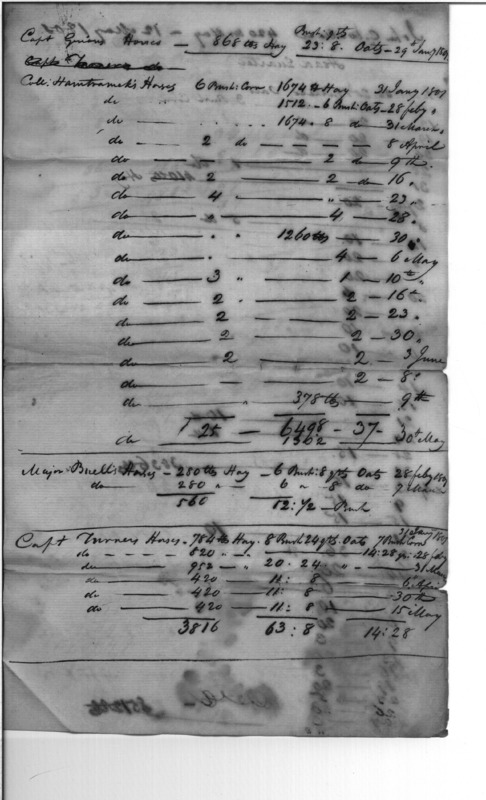 Bush qts
Capt Guion Horses — 868 lbs Hay 23 : 8. Oats — 29 Jany 1801
Capt Turners do
Coll: Hamtramck's Horses 6 Bush: Corn 1674 lb Hay 31 Jany 1801
do 1512. — 6 Bush: Oats — 28 feby.
do 1674. 8 do 31 March.
do — 2 do — — — — — 8 April
do 2 do 9th.
do — 2 2 — do — 16 "
do — 4 " — 23 "
do — " 4 — 28.
do — " 1260 lb — 30 "
do — . 4 — 6 May
do — 3 " 1 — 10th "
do — 2 " 2 — 16t.
do — 2 2 — 23.
do 2 2 — 30 "
do — 2 2 — 3 June
do — — 2 — 8 "
do — " 378 lb — 9th
25 — 6498 — 37 —
do 1302 — 30t May
Major Buell's Horses — 280 lbs Hay — 6 Bush: 8 qts Oats 28 feby 1801
do 280 " — 6 " 8 do —
560 12: 1/2 — Bush
31 Jany 1801
Capt Turners Horses — 784 lb Hay. 8 Bush 24 qts. Oats 7 Bush Corn
do — — — 820 " " 14:28 28 feby
do — 952 — " 20 . 24 " " — 31
do — 420 11: 8
do — 420 11: 8 30th
do — 420 11: 8 15 May
3816 63 : 8 14 : 28